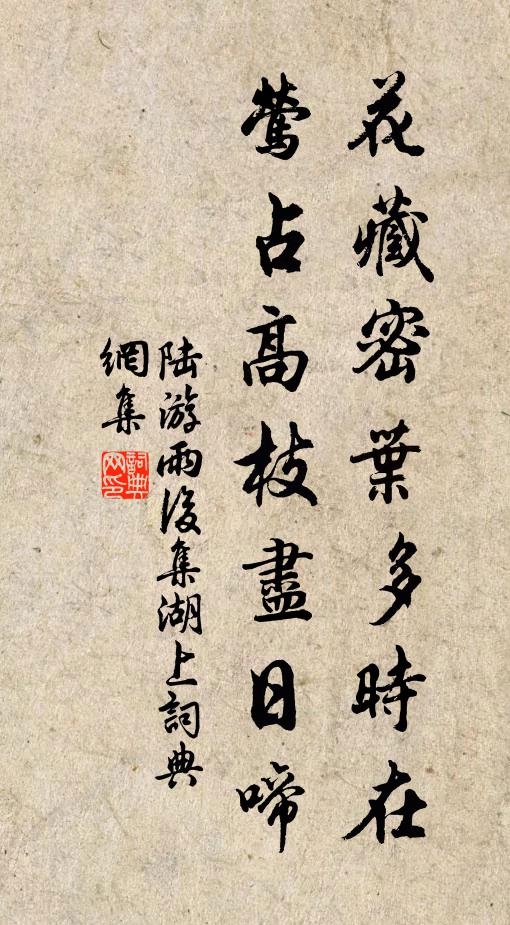 花藏密葉多時在
鶯占高枝盡日啼
陆游雨後集湖上詞典
網集
詞典網印